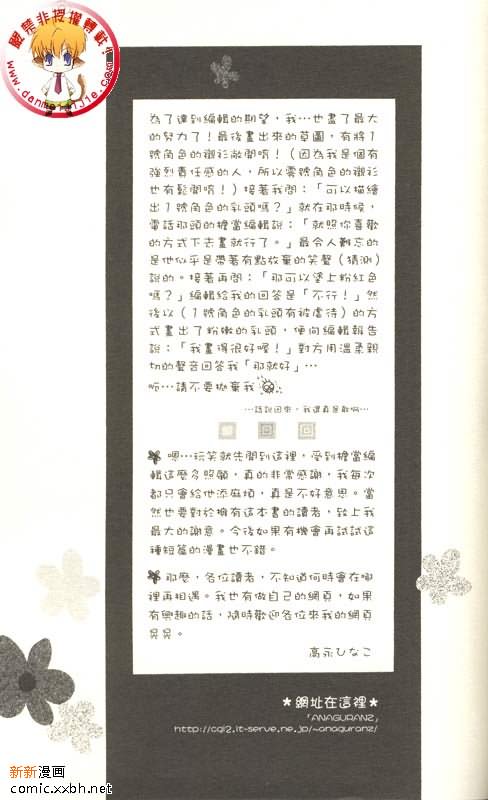 嚴禁非授權轉載!
www.danmeixnjie.com
為了達到編輯的期望，我…也畫了最大
的努力了！最後畫出來的草圖，有將1
號角色的襯衫敞開唷！（因為我是個有
強烈責任感的人，所以零號角色的襯衫
也有鬆開唷！）接著我問：「可以描繪
出1號角色的乳頭嗎？」就在那時候，
電話那頭的擔當編輯說：「就照你喜歡
的方式下去畫就行了。」最令人難忘的
是他似乎是帶著有點放棄的笑聲（猜測）
說的。接著再問：「那可以塗上粉紅色
嗎？」編輯給我的回答是「不行！」然
後以（1號角色的乳頭有被虐待）的方
式畫出了粉嫩的乳頭，便向編輯報告
說：「我畫得很好喔！」對方用溫柔親
切的聲音回答我「那就好」…
呃…請不要拋棄我
…話說回來，我還真是敢啊…
嗯…玩笑就先開到這裡，受到擔當編
輯這麼多照顧，真的非常感謝，我每次
都只會給他添麻煩，真是不好意思。當
然也要對於擁有這本書的讀者，致上我
最大的謝意。今後如果有機會再試試這
種短篇的漫畫也不錯。
那麼，各位讀者，不知道何時會在哪
裡再相遇。我也有做自己的網頁，如果
有興趣的話，隨時歡迎各位來我的網頁
晃晃。
高永ひなこ
★網址在這裡★
「ANAGURANZ」
http://cgi2.it-serve.ne.jp/~anaguranz/
新新漫画
comic.xxbh.net